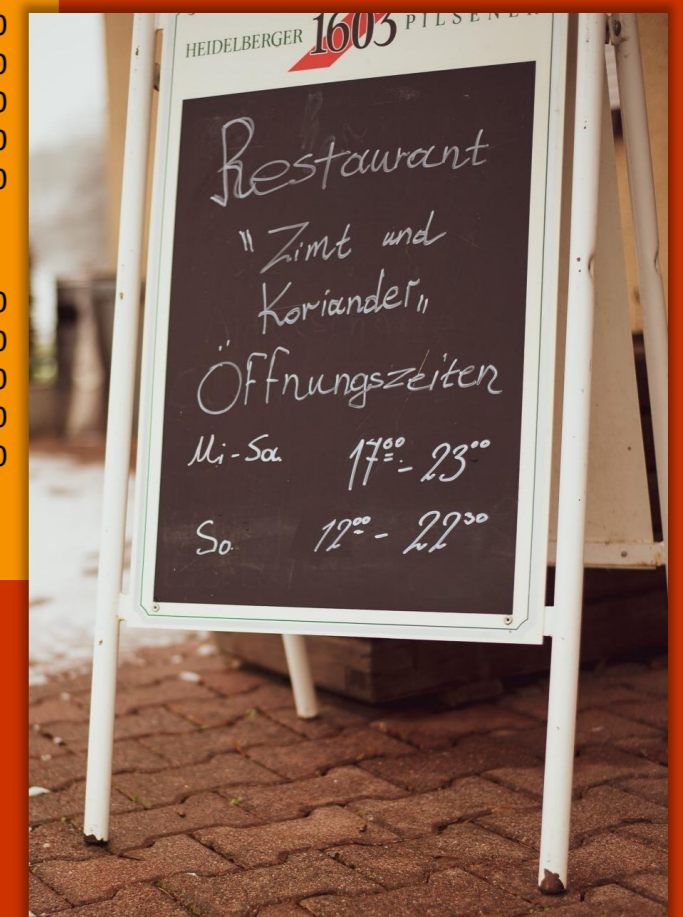 0
0
0
0
0
0
0
0
0
0
HEIDELBERGER 1603 PILSENER
Restaurant
"Zimt und
Koriander„
Öffnungszeiten
Mi-Sa 17⁰⁰- 23⁰⁰
So 12⁰⁰ - 22³⁰